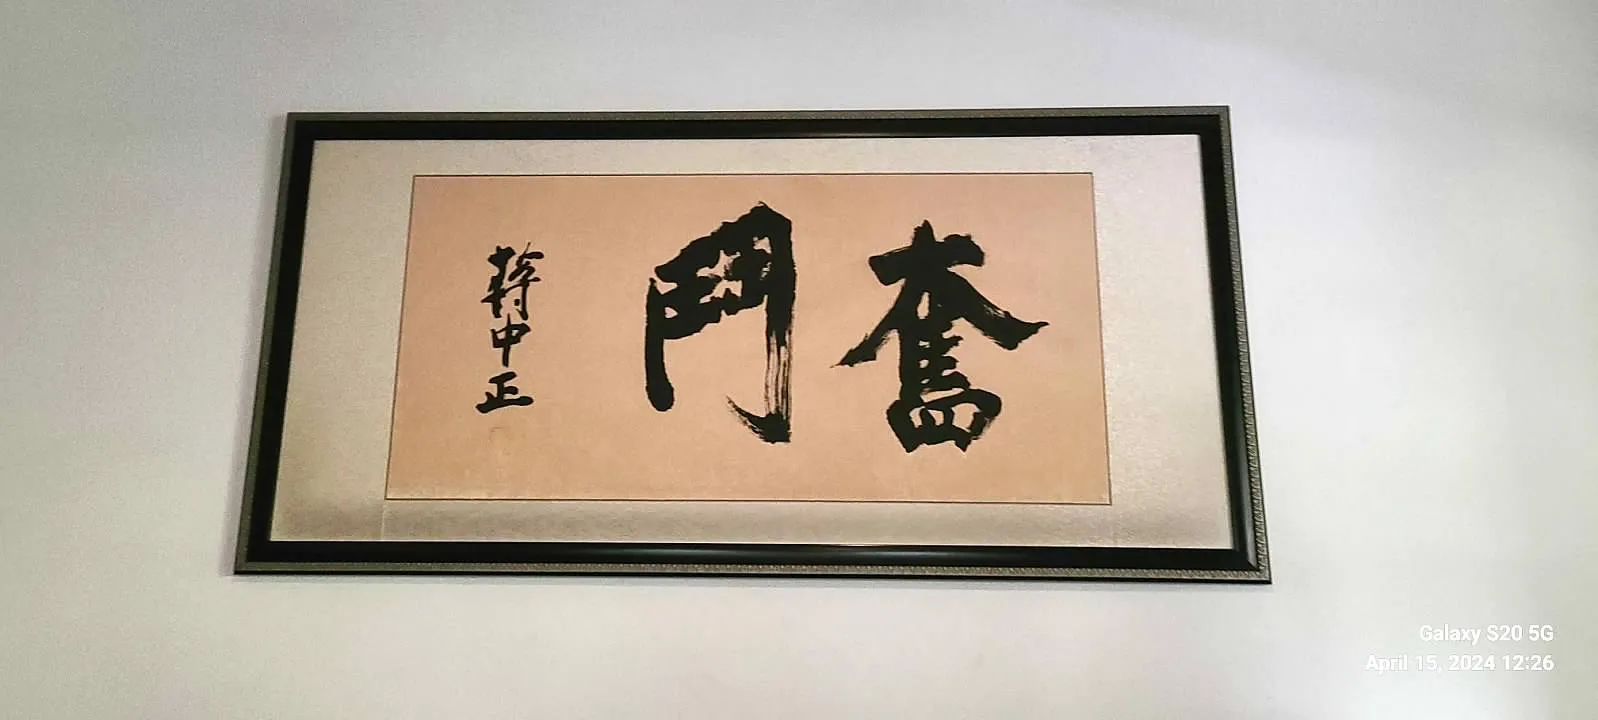 奮鬥
蔣中正
Galaxy S20 5G
April 15, 2024 12:26